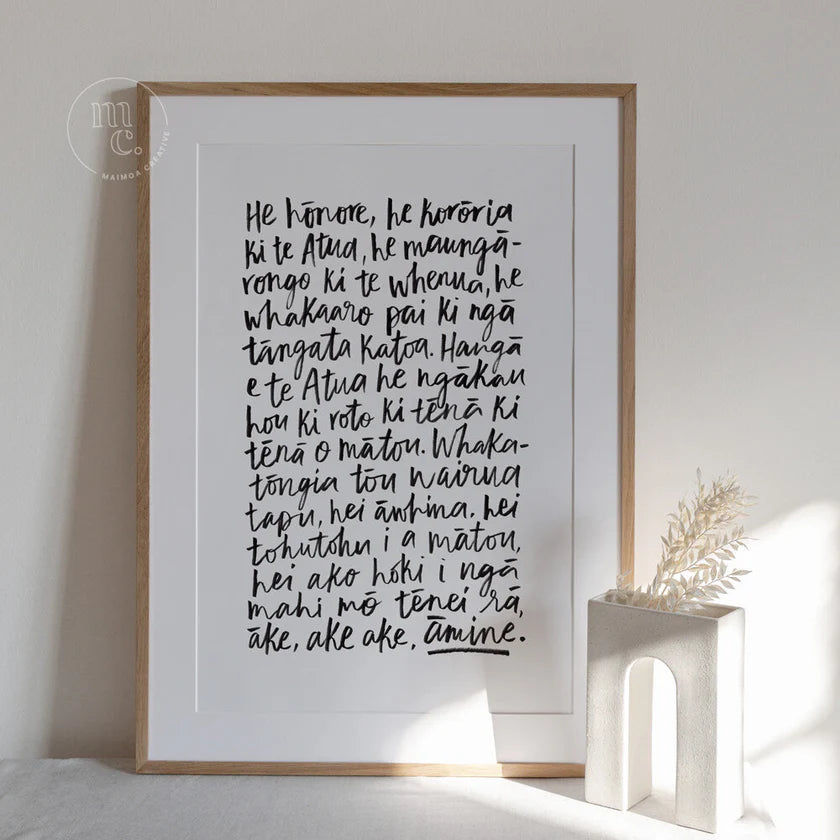 mc.
MAIMOA CREATIVE
He hōnore, he korōria
ki te Atua, he maungā-
rongo ki te whenua, he
whakaaro pai ki ngā
tāngata katoa. Hangā
e te Atua he ngākau
hou ki roto ki tēnā ki
tēnā o mātou. Whaka-
tōngia tōu wairua
tapu, hei āwhina, hei
tohutohu i a mātou,
hei ako hoki i ngā
mahi mō tēnei rā,
āke, ake ake, āmine.